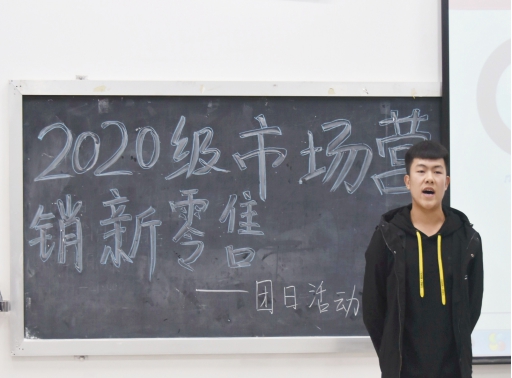 2020级市场营
销新零售
——团日活动